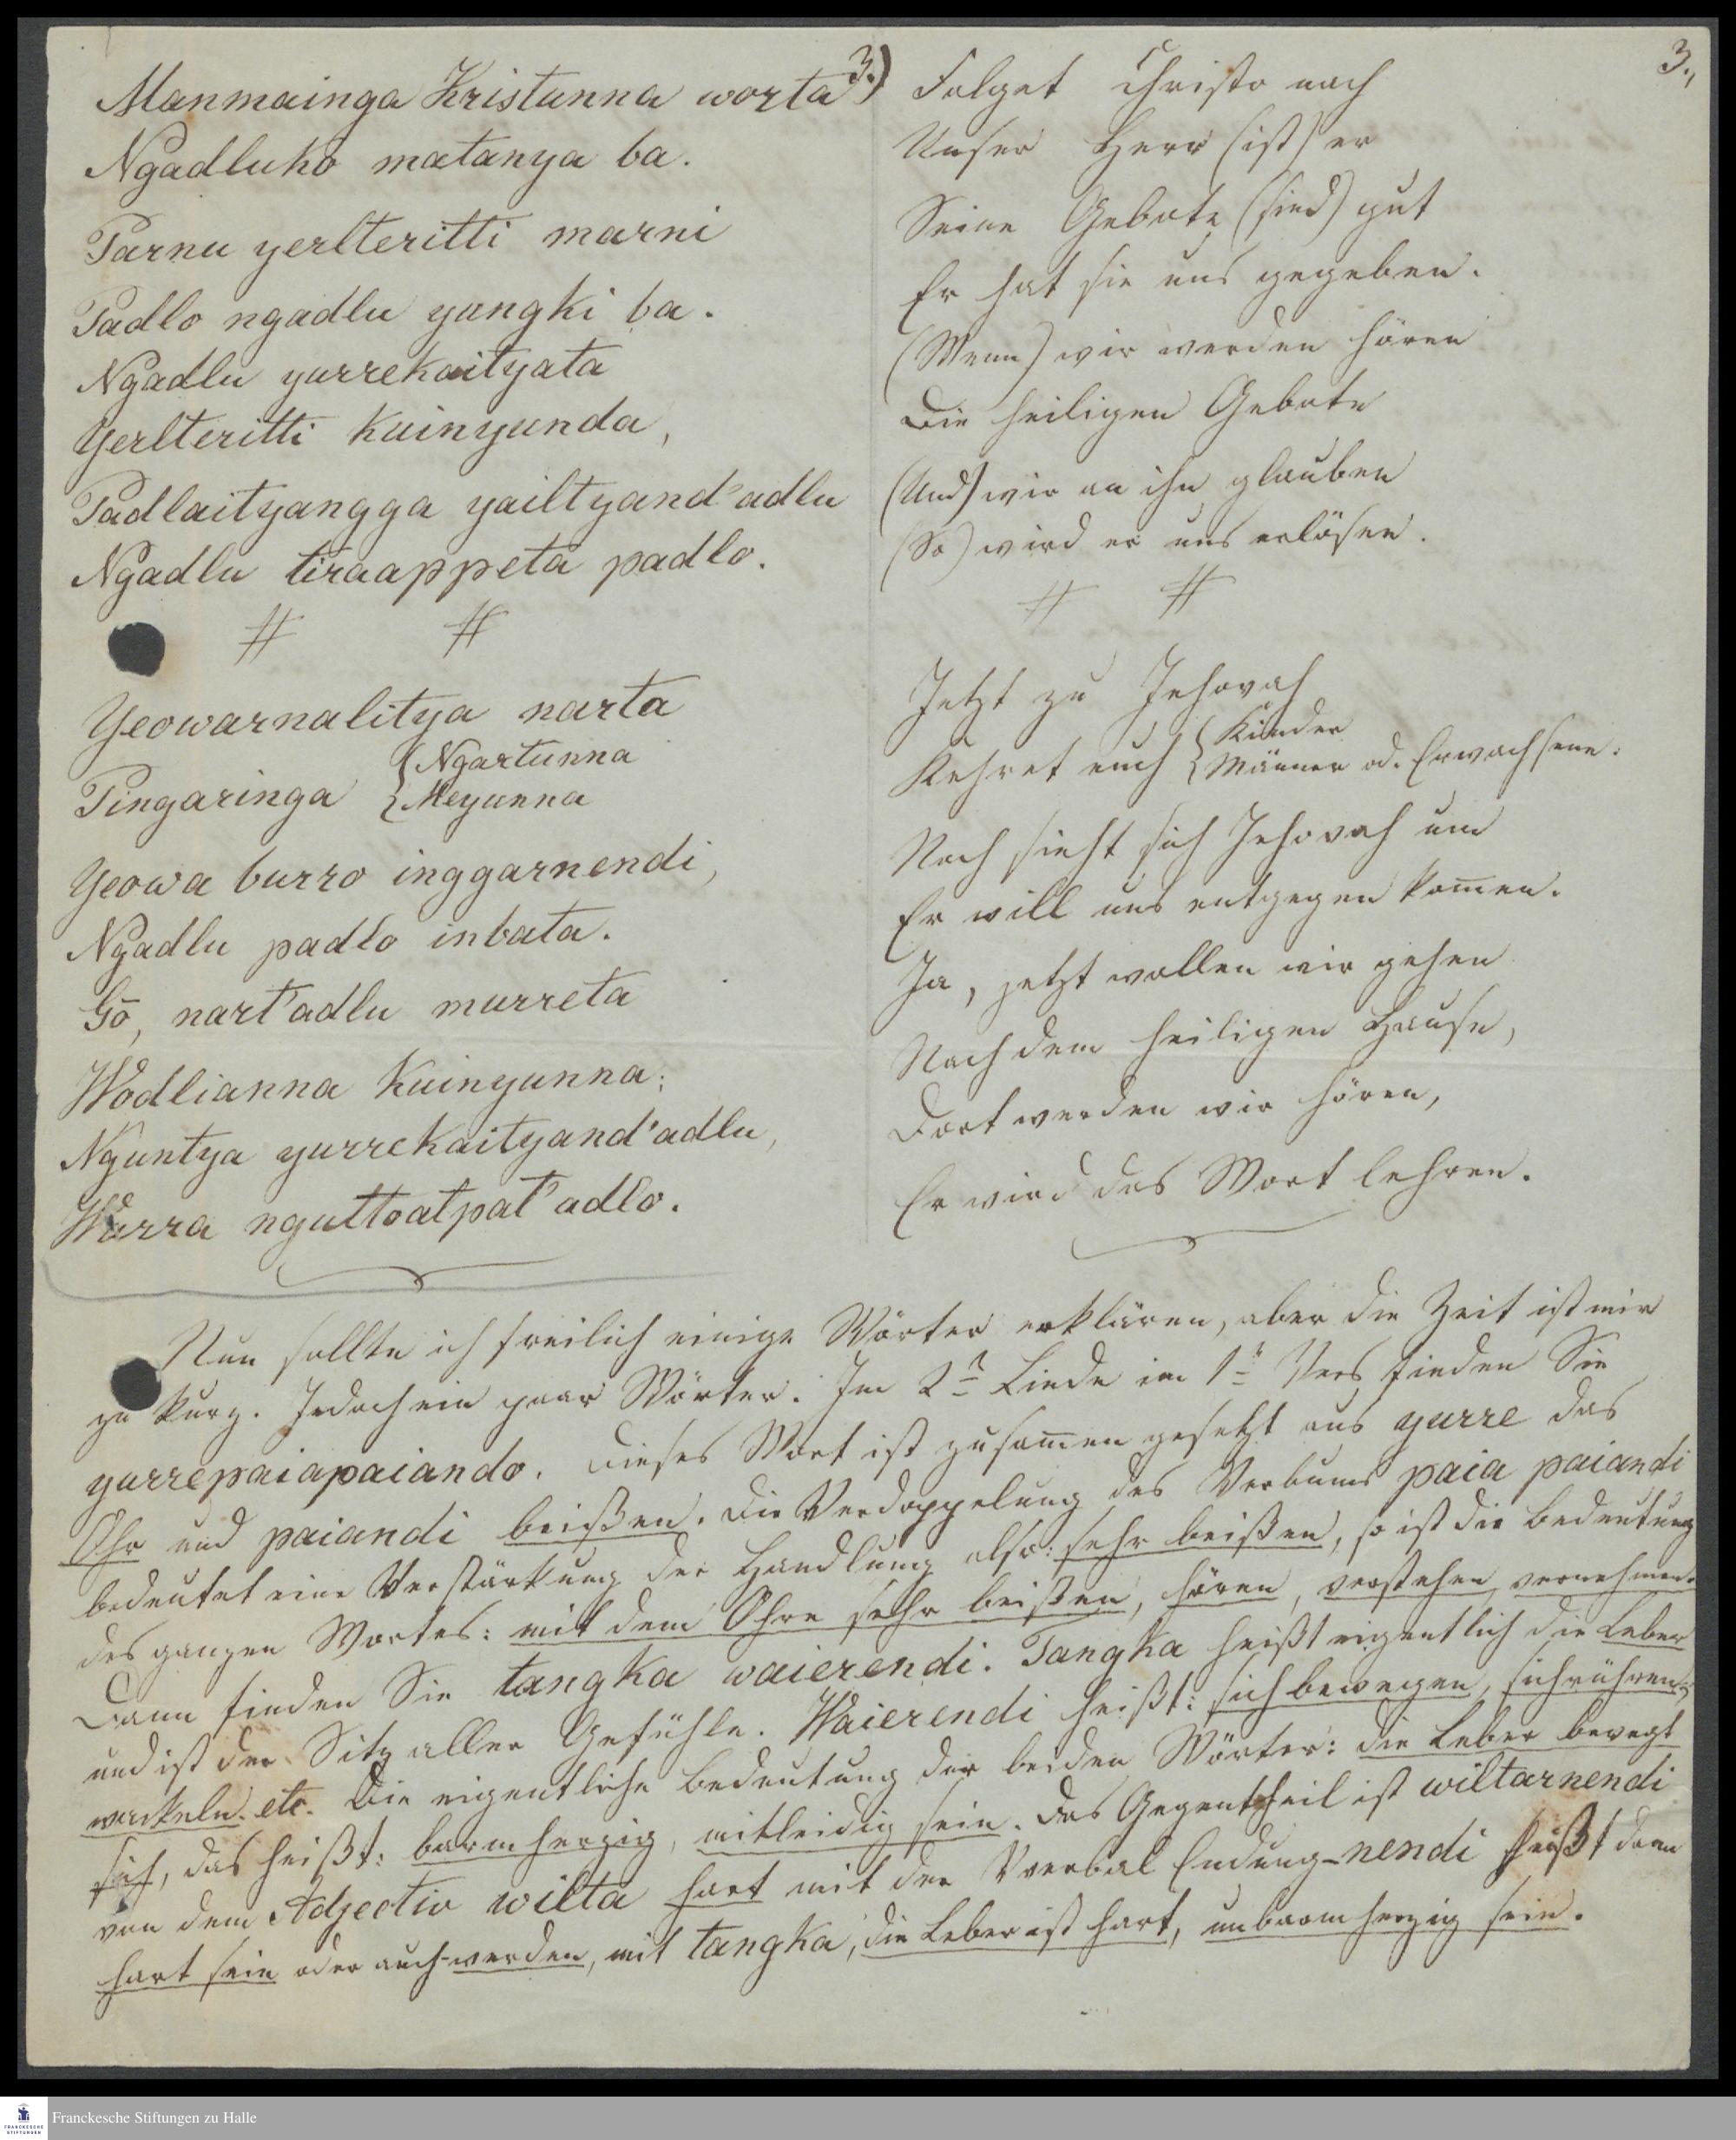 3.)
3.,
Manmainga Kristunna worta
Ngadluko matanya ba.
Parnu yerlteritti marni
Padlo ngadlu yungki ba.
Ngadlu yurrekaityata
Yerlteritti kuinyunda,
Padlaityangga yailtyand'adlu
Ngadlu tiraappeta padlo.
# #
Yeowarnalitya narta
Pingaringa { Ngartunna
{ Meyunna
Yeowa burro inggarnendi,
Ngadlu padlo inbata.
Gō, nart'adlu murreta
Wodlianna kuinyunna;
Nguntya yurrekaityand'adlu,
Warra nguttoatpat'adlo.
Folget Christo nach
Unser Herr (ist) er
Seine Gebote (sind) gut
Er hat sie uns gegeben.
(Wenn) wir werden hören
Die heiligen Gebote
(Und) wir an ihn glauben
(So) wird er uns erlösen.
# #
Jetzt zu Jehovah
Kehret euch { Kinder
{ Männer od. Erwachsene.
Noch sieht sich Jehovah um
Er will uns entgegen kom̅en.
Ja, jetzt wollen wir gehen
Nach dem heiligen Hause,
Dort werden wir hören,
Er wird das Wort lehren.
Nun sollte ich freilich einige Wörter erklären, aber die Zeit ist mir
zu kurz. Jedoch ein paar Wörter. Im 2n Liede im 1n Vers finden Sie
yurrepaiapaiando. Dieses Wort ist zusam̅en gesetzt aus yurre das
Ohr und paiandi beißen. Die Verdoppelung des Verbums paia paiandi
bedeutet eine Verstärkung der Handlung also: sehr beißen, so ist die Bedeutung
des ganzen Wortes: mit dem Ohre sehr beißen, hören, verstehen, vernehmen.
Dann finden Sie tangka waierendi. Tangka heißt eigentlich die Leber
und ist der Sitz aller Gefühle. Waierendi heißt: sich bewegen, sich rühren,
wackeln. etc. Die eigentliche Bedeutung der beiden Wörter: die Leber bewegt
sich, das heißt: barmherzig, mitleidig sein. Das Gegentheil ist wiltarnendi
von dem Adjectiv wilta hart mit der Verbal Endung -nendi heißt dann
hart sein oder auch werden, mit tangka, die Leber ist hart, unbarmherzig sein.
FRANCKESCHE
STIFTUNGEN
Franckesche Stiftungen zu Halle